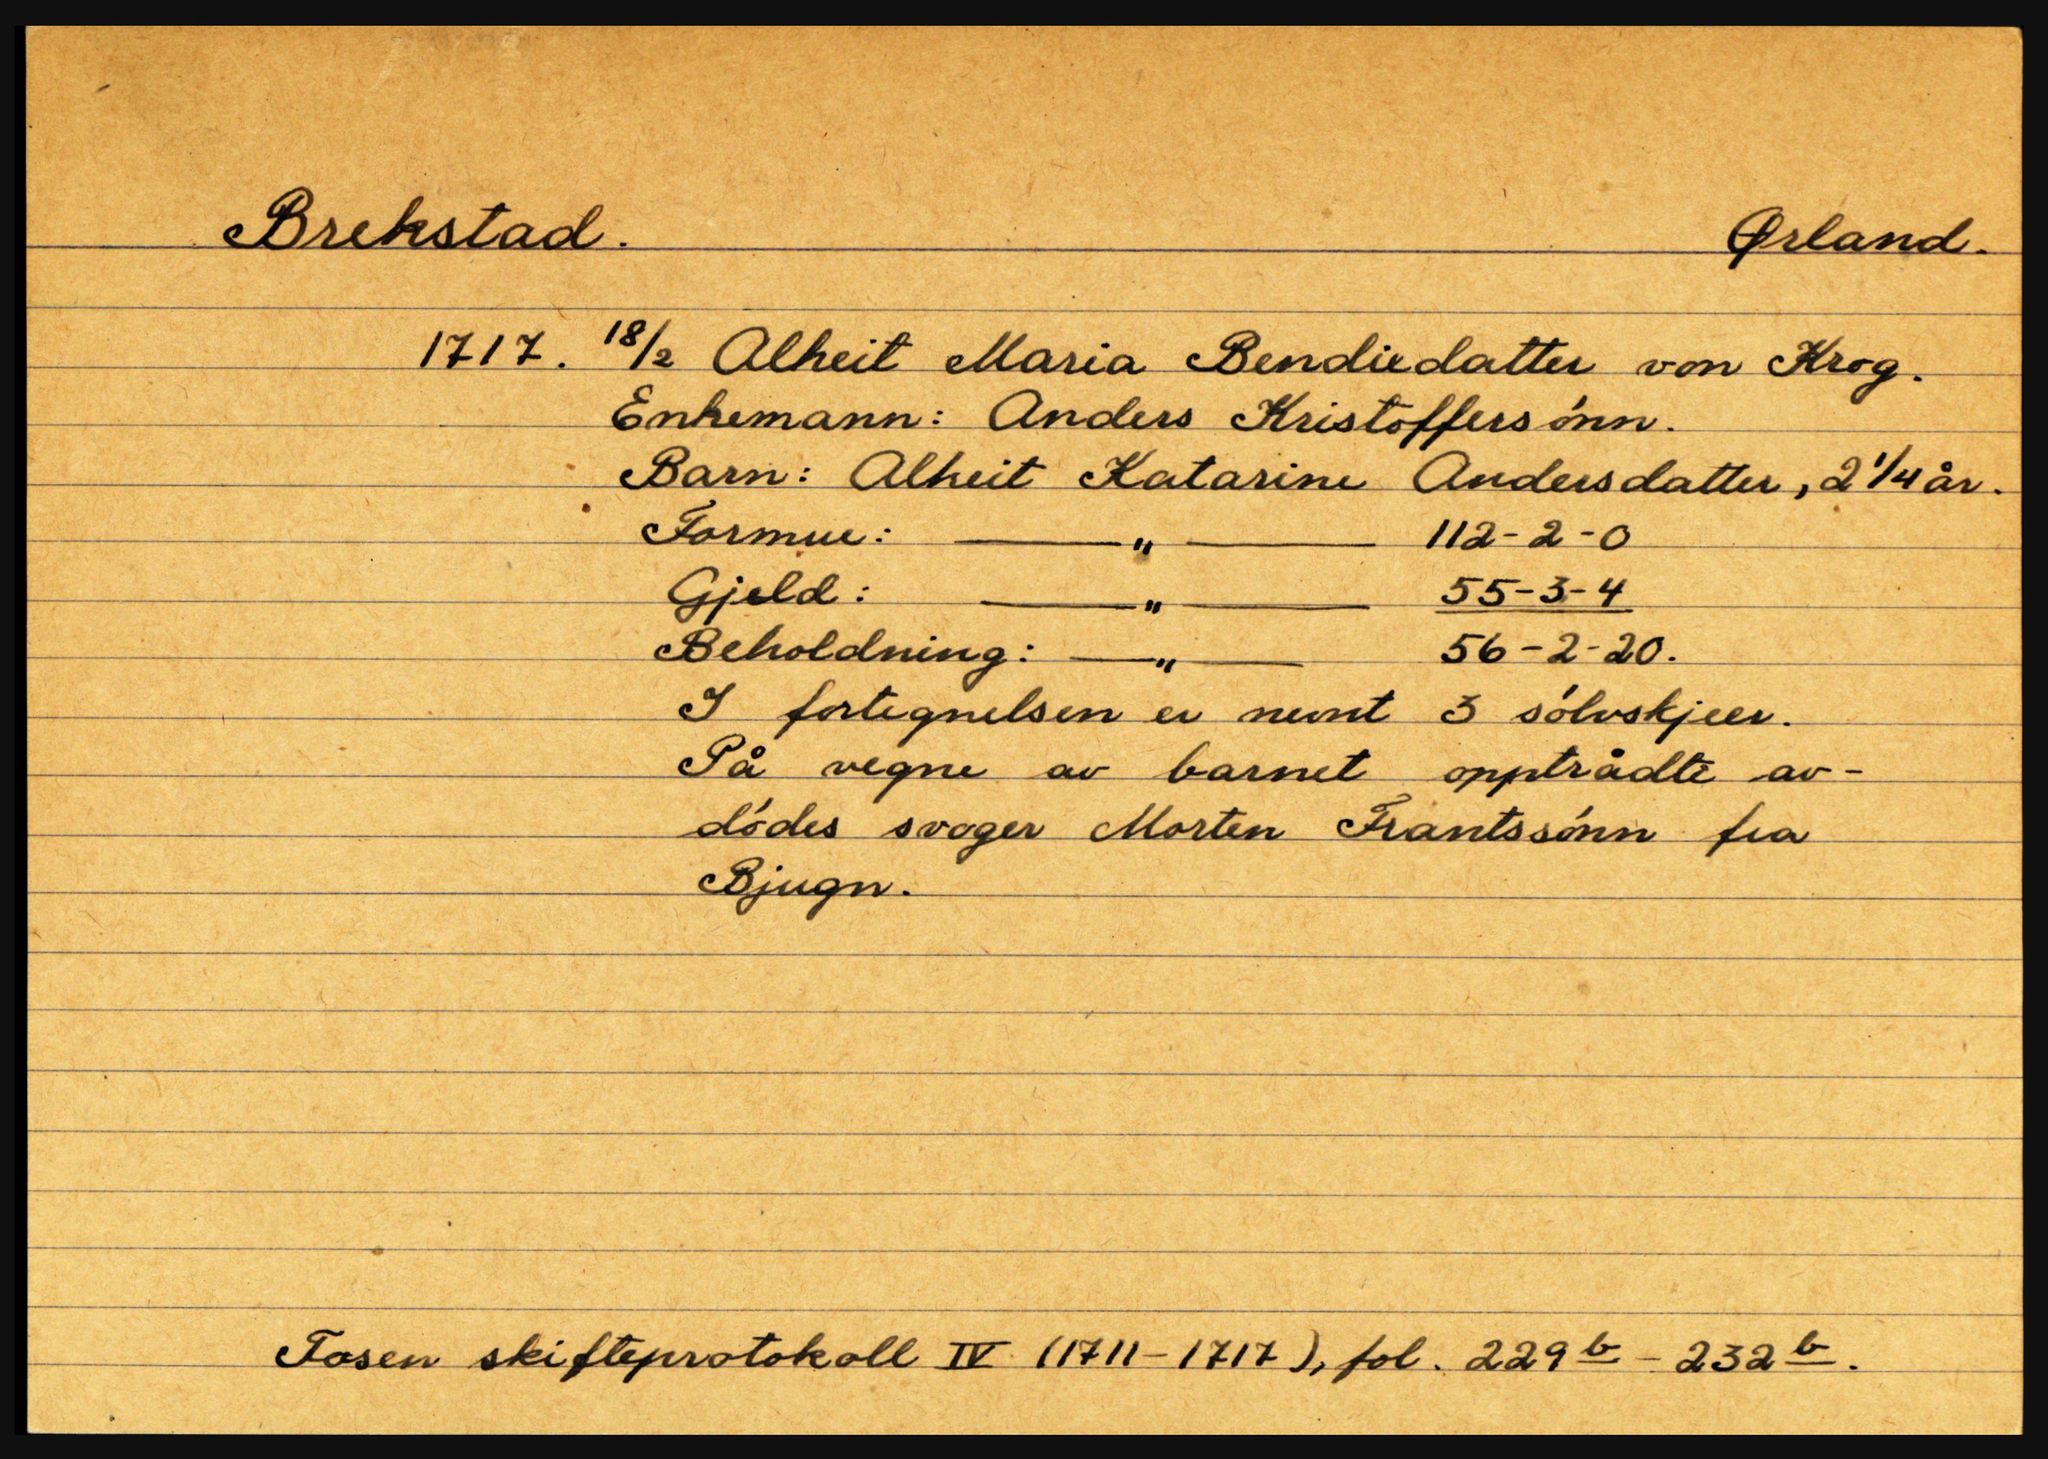 Brekstad. Ørland.
1717. 18/2 Alheit Maria Bendixdatter von Krog.
Enkemann: Anders Kristoffersønn.
Barn: Alheit Katarine Andersdatter, 2 1/4 år.
Formue: —— " —— 112-2-0
Gjeld: —— " —— 55-3-4
Beholdning: —— " —— 56-2-20.
I fortegnelsen er nevnt 3 sølvskjeer.
På vegne av barnet opptrådte av-
dødes svoger Morten Frantssønn fra
Bjugn.
Fosen skifteprotokoll IV (1711-1717), fol. 229 b - 232 b.